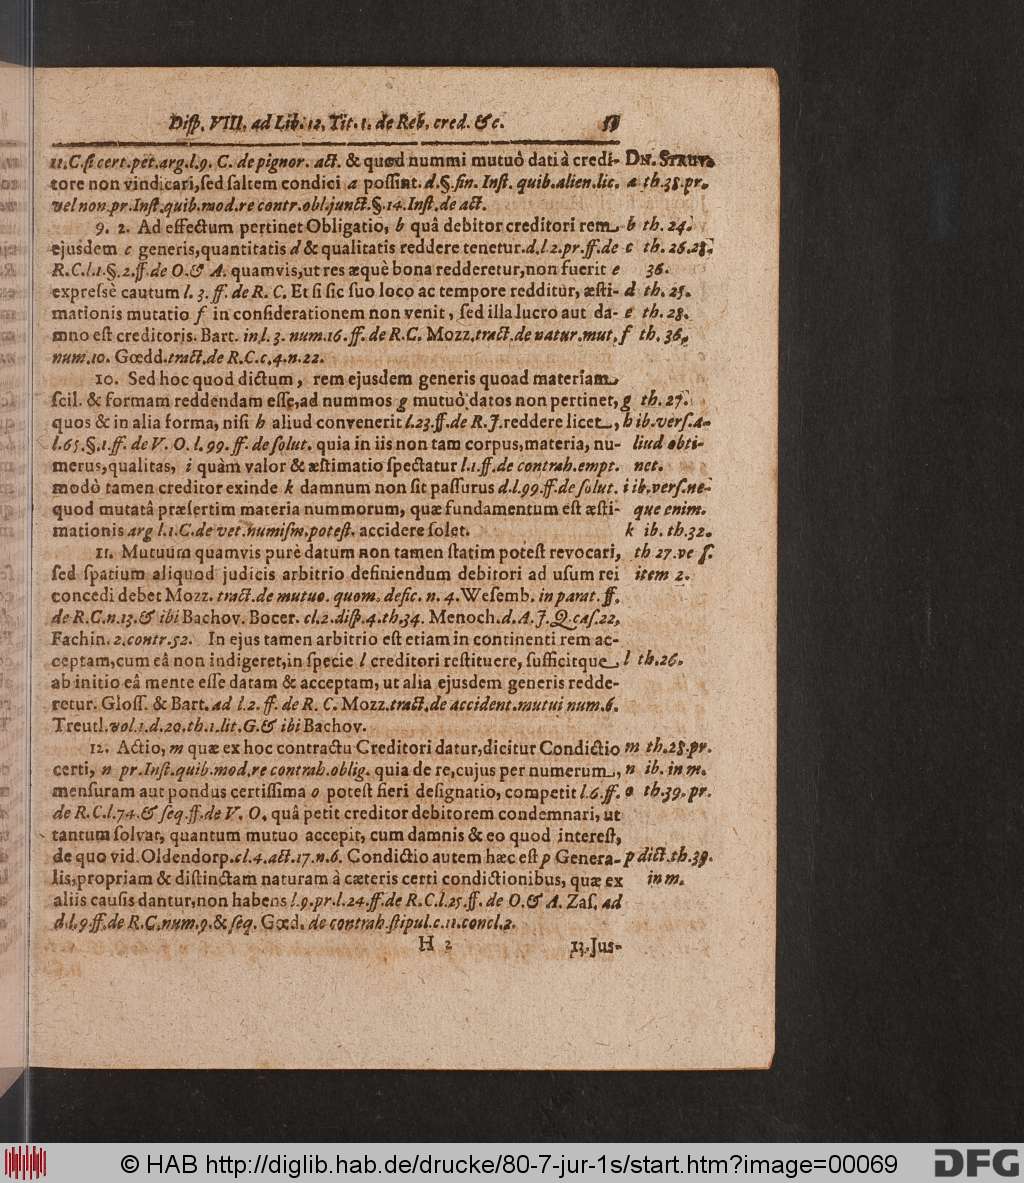 Disp. VIII. ad Lib. 12. Tit. 1. de Reb. cred. &c.
11. C. si cert. pet. arg. l. 9. C. de pignor. act. & quod nummi mutuò dati à credi- DN. STRUV.
tore non vindicari, sed saltem condici a possint. d. §. fin. Inst. quib. alien. lic. a th. 38. pr.
vel non. pr. Inst. quib. mod. re contr. obl. junct. §. 14. Inst. de act.
9. 2. Ad effectum pertinet Obligatio, b quâ debitor creditori rem b th. 24.
ejusdem c generis, quantitatis d & qualitatis reddere tenetur. d. l 2. pr. ff. de c th. 26. 28.
R. C. l. 1. §. 2. ff. de O. & A. quamvis, ut res æquè bona redderetur, non fuerit e 36.
expressè cautum l. 3. ff. de R. C. Et si sic suo loco ac tempore redditur, æsti- d th. 25.
mationis mutatio f in considerationem non venit, sed illa lucro aut da- e th. 28.
mno est creditoris. Bart. in l. 3. num. 16. ff. de R. C. Mozz. tract. de natur. mut. f th. 36.
num. 10. Gœdd. tract. de R. C. c. 4. n. 22.
10. Sed hoc quod dictum, rem ejusdem generis quoad materiam
scil. & formam reddendam esse, ad nummos g mutuò datos non pertinet, g th. 27.
quos & in alia forma, nisi h aliud convenerit l. 23. ff. de R. J. reddere licet, h ib. vers. a-
l. 65. §. 1. ff. de V. O. l. 99. ff. de solut. quia in iis non tam corpus, materia, nu- liud obti-
merus, qualitas, i quàm valor & æstimatio spectatur l. 1. ff. de contrah. empt. net.
modò tamen creditor exinde k damnum non sit passurus d. l. 99. ff. de solut. i ib. vers. ne-
quod mutatâ præsertim materia nummorum, quæ fundamentum est æsti- que enim.
mationis arg l. 1. C. de vet. numism. potest. accidere solet. k ib. th. 32.
11. Mutuum quamvis purè datum non tamen statim potest revocari, th 27. ve s.
sed spatium aliquod judicis arbitrio definiendum debitori ad usum rei item 2.
concedi debet Mozz. tract. de mutuo. quom. defic. n. 4. Wesemb. in parat. ff.
de R. C. n. 13. & ibi Bachov. Bocer. cl. 2. disp. 4. th. 34. Menoch. d. A. J. Q. cas. 22.
Fachin. 2. contr. 52. In ejus tamen arbitrio est etiam in continenti rem ac-
ceptam, cum eâ non indigeret, in specie l creditori restituere, sufficitque l th. 26.
ab initio eâ mente esse datam & acceptam, ut alia ejusdem generis redde-
retur. Gloss. & Bart. ad l. 2. ff. de R. C. Mozz. tract. de accident. mutui num. 6.
Treutl. vol. 1. d. 20. th. 1. lit. G. & ibi Bachov.
12. Actio, m quæ ex hoc contractu Creditori datur, dicitur Condictio m th. 28. pr.
certi, n pr. Inst. quib. mod. re contrah. oblig. quia de re, cujus per numerum, n ib. in m.
mensuram aut pondus certissima o potest fieri designatio, competit l. 6. ff. o th. 39. pr.
de R. C. l. 74. & seq. ff. de V. O. quâ petit creditor debitorem condemnari, ut
tantum solvat, quantum mutuo accepit, cum damnis & eo quod interest,
de quo vid. Oldendorp. cl. 4. act. 17. n. 6. Condictio autem hæc est p Genera- p dict. th. 39.
lis, propriam & distinctam naturam à cæteris certi condictionibus, quæ ex in m.
aliis causis dantur, non habens l. 9. pr. l. 24. ff. de R. C. l. 25. ff. de O. & A. Zas. ad
d. l. 9. ff. de R. C. num. 9. & seq. Gœd. de contrah. stipul. c. 11. concl. 2.
H 2 13. Jus-
© HAB http://diglib.hab.de/drucke/80-7-jur-1s/start.htm?image=00069 DFG